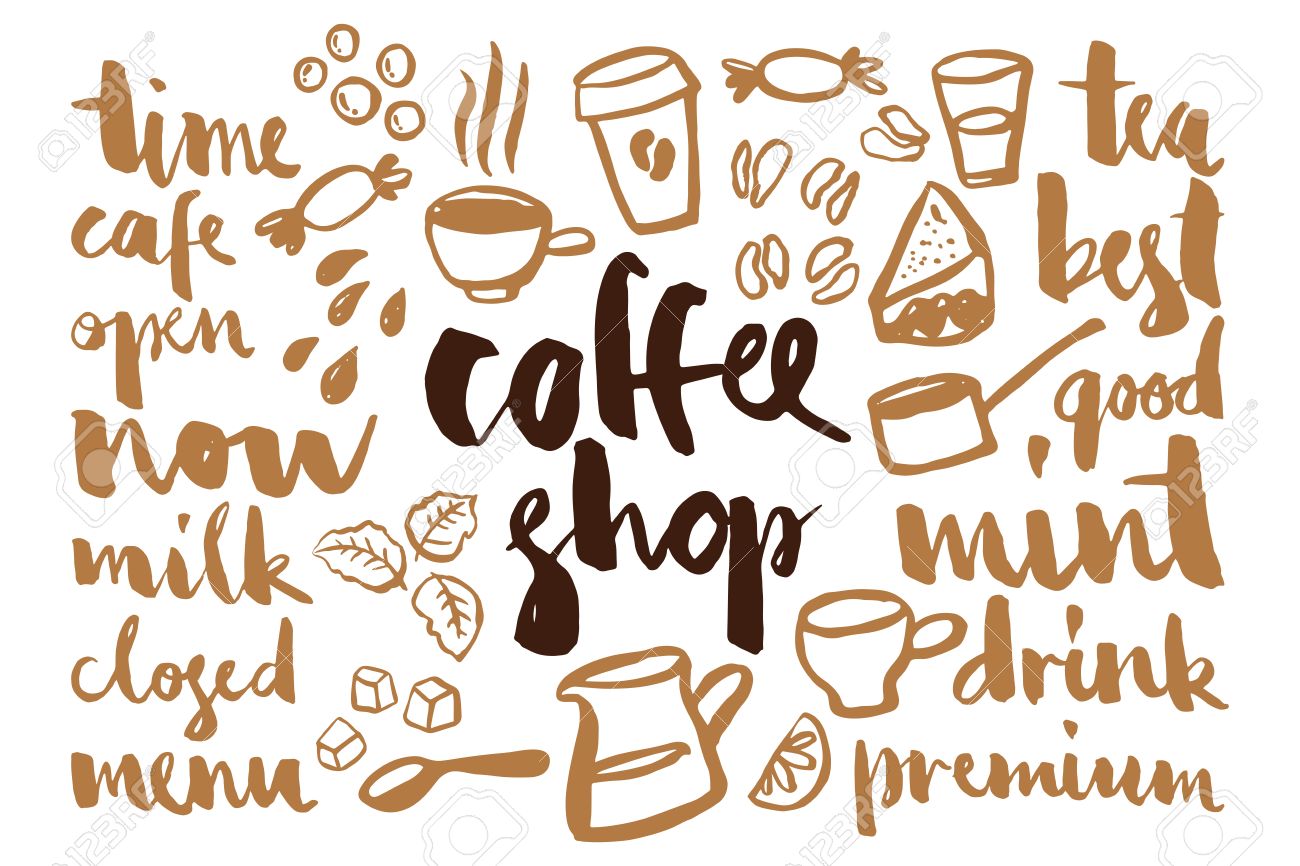 time
cafe
open
now
milk
closed
menu
coffee
shop
tea
best
good
mint
drink
premium
123RF